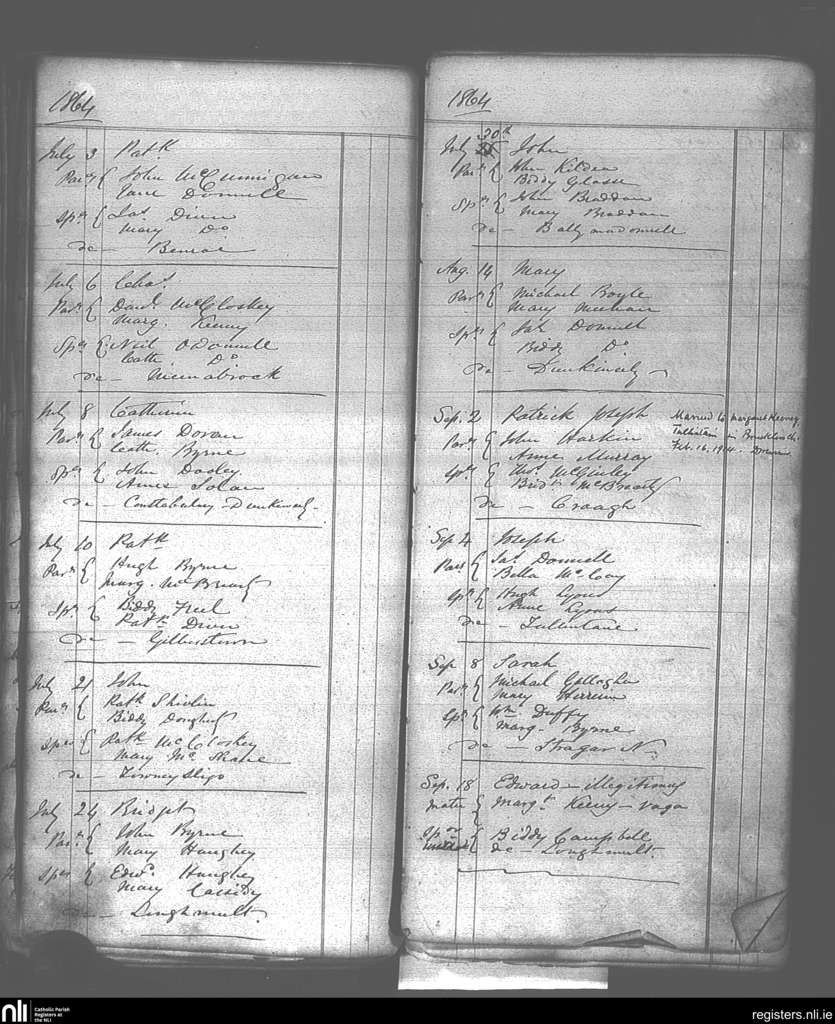 1864
July 3 Patk
Parts { John McCunnigan
Jane Donnell
Sprs { Jas Diver
Mary Do
de — Benroe
July 6 Chas.
Parts { Danl. McCloskey
Marg. Kenny
Sprs { Neil O'Donnell
Cath Do
de —
July 8 Catherine
Parts { James Doran
Cath. Byrne
Sprs { John Dooley
Anne
de — Constabulary - Dunkineely
July 10 Patk
Parts { Hugh Byrne
Marg. McBrearty
Sprs { Biddy Freel
Patk Diver
de — Gilbertstown
July 21 John
Parts { Patk Shivlin
Biddy Dougherty
Sprs { Patk McCloskey
Mary Mc Shane
de —
July 24 Bridget
Parts { John Byrne
Mary Haughey
Sprs { Edwd. Haughey
Mary Cassidy
de — Loughmult.
1864
30th
July John
Parts { John Kildea
Biddy Glasse
Sprs { John Braddan
Mary Braddan
de — Ballymadonnell
Aug. 14 Mary
Parts { Michael Boyle
Mary Meehan
Sprs { Jas Donnell
Biddy Do
de — Dunkineely
Sep. 2 Patrick Joseph
Parts { John Harkin
Anne Murray
Sprs { Thos. McGinley
Bridt McBrearty
de — Croagh
Married to Margaret Keeney
in
Feb. 16. 1904.
Sep. 4 Joseph
Parts { Jas. Donnell
Bella McCoy
Sprs { Hugh Lyons
Anne Lyons
de — Tullintane
Sep 8 Sarah
Parts { Michael Gallagher
Mary
Sprs { Wm Duffy
Marg. Byrne
de — Stragar N.
Sep. 18 Edward — illegitimus
mater { Margt. Keeny — vaga
Spor { Biddy Campbell
de — Loughmult.
nli
Catholic Parish
Registers at
the NLI
registers.nli.ie